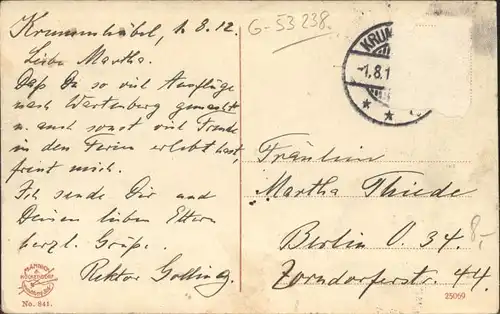 Krummhübel, 1.8.12.
G-53238.
Liebe Martha.
Daß Du so viel Ausflüge
nach Wartenberg gemacht
u. auch sonst viel Freude
in den Ferien erlebt hast,
freut mich.
Ich sende Dir und
Deinen lieben Eltern
herzl. Grüße.
Rektor
KRUM
-1.8.1
Fräulein
Martha Thiede
Berlin O. 34.
Zorndorferstr. 44.
8,-
No. 841.
25069